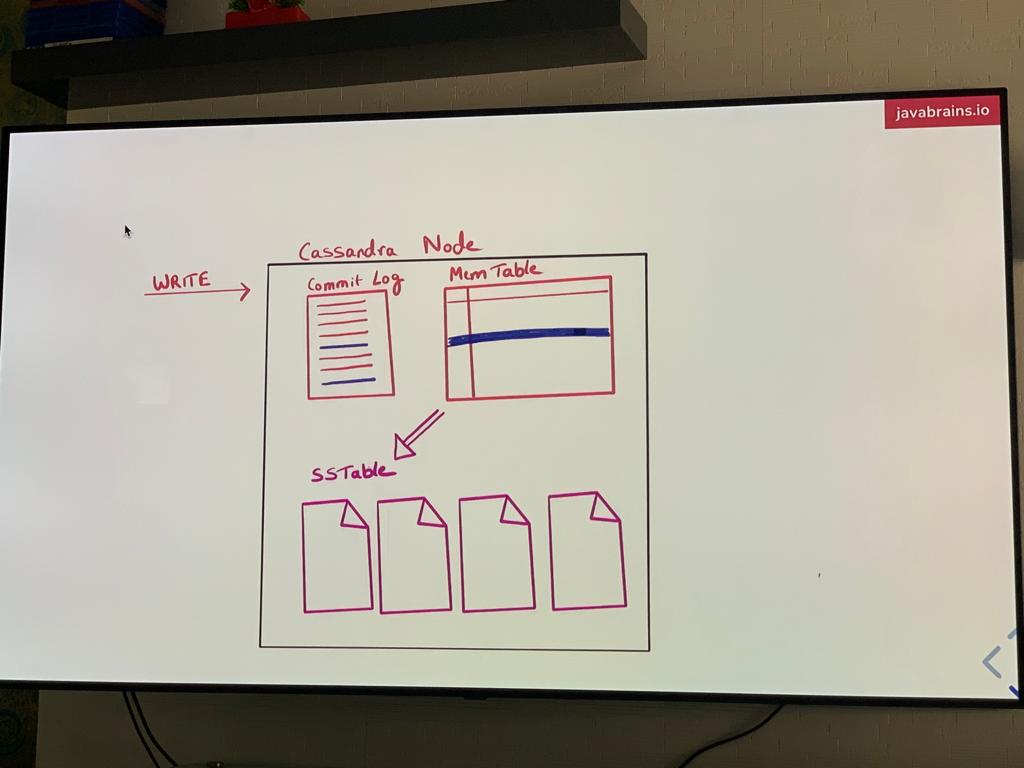 javabrains.io
Cassandra Node
WRITE
Commit Log
Mem Table
SSTable